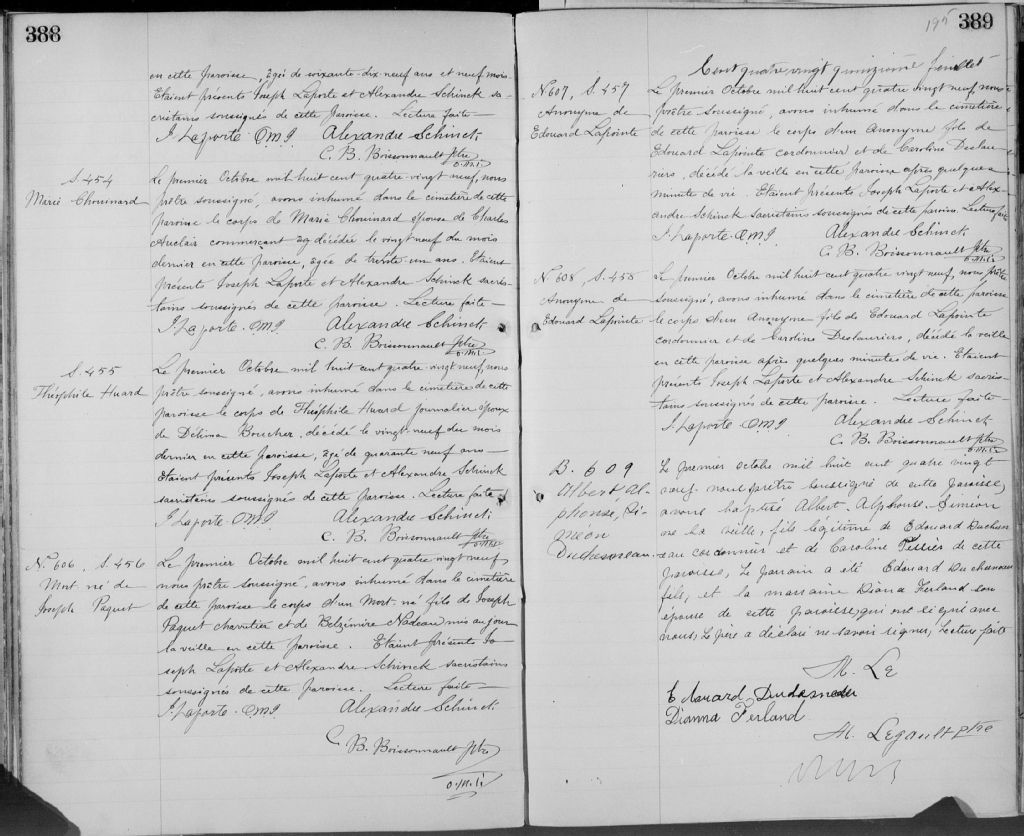 388
en cette paroisse, agée de soixante-dix-neuf ans et neuf mois
Etaient présents Joseph Laporte et Alexandre Schinck sa-
cristains soussignés de cette paroisse. Lecture faite—
J. Laporte O.M.J. Alexandre Schinck
C. B. Boissonnault ptre
O.M.I.
S. 454
Marie Chouinard
Le premier Octobre mil huit cent quatre-vingt neuf, nous
prêtre soussigné, avons inhumé dans le cimetière de cette
paroisse le corps de Marie Chouinard épouse de Charles
Auclair commerçant décédée le vingt neuf du mois
dernier en cette paroisse, agée de trente un ans. Etaient
présents Joseph Laporte et Alexandre Schinck sacris-
tains soussignés de cette paroisse. Lecture faite—
J. Laporte O.M.J. Alexandre Schinck
C. B. Boissonnault ptre
O.M.I.
S. 455
Théophile Huard
Le premier Octobre mil huit cent quatre vingt neuf, nous
prêtre soussigné, avons inhumé dans le cimetière de cette
paroisse le corps de Théophile Huard journalier époux
de Délima Boucher, décédé le vingt-neuf du mois
dernier en cette paroisse, agé de quarante neuf ans—
Etaient présents Joseph Laporte et Alexandre Schinck
sacristains soussignés de cette paroisse. Lecture faite
J. Laporte O.M.J. Alexandre Schinck
C. B. Boissonnault ptre
O.M.I.
N. 606, S. 456
Mort né de
Joseph Paquet
Le premier Octobre mil huit cent quatre vingt neuf
nous prêtre soussigné, avons inhumé dans le cimetière
de cette paroisse le corps d'un Mort-né fils de Joseph
Paquet charretier et de Belzémire Nadeau mis au jour
la veille en cette paroisse. Etaient présents Jo-
seph Laporte et Alexandre Schinck sacristains
soussignés de cette paroisse. Lecture faite—
J. Laporte O.M.J. Alexandre Schinck
C. B. Boissonnault ptre
O.M.I.
195
389
Cent quatre vingt quinzième feuillet
N 607, S. 457
Anonyme de
Edouard Lapointe
Le premier Octobre mil huit cent quatre vingt neuf, nous
prêtre soussigné, avons inhumé dans le cimetière
de cette paroisse le corps d'un Anonyme fils de
Edouard Lapointe cordonnier et de Caroline Deslau-
riers, décédé la veille en cette paroisse après quelques
minutes de vie. Etaient présents Joseph Laporte et Alex-
andre Schinck sacristains soussignés de cette paroisse. Lecture faite
J. Laporte O.M.J. Alexandre Schinck
C. B. Boissonnault ptre
O.M.I.
N 608, S. 458
Anonyme de
Edouard Lapointe
Le premier Octobre mil huit cent quatre vingt neuf, nous prêtre
soussigné, avons inhumé dans le cimetière de cette paroisse
le corps d'un Anonyme fils de Edouard Lapointe
cordonnier et de Caroline Deslauriers, décédé la veille
en cette paroisse après quelques minutes de vie. Etaient
présents Joseph Laporte et Alexandre Schinck sacris-
tains soussignés de cette paroisse. Lecture faite—
J. Laporte O.M.J. Alexandre Schinck
C. B. Boissonnault ptre
O.M.I.
B. 609
Albert Al-
phonse, Si-
méon
Duchesneau
Le premier octobre mil huit cent quatre vingt
neuf nous prêtre soussigné de cette paroisse,
avons baptisé Albert Alphonse Siméon
né la veille, fils légitime de Edouard Duchesn-
eau cordonnier et de Caroline Tessier de cette
paroisse, Le parrain a été Edouard Duchesneau
fils, et la marraine Diana Ferland son
épouse de cette paroisse, qui ont signé avec
nous, Le père a déclaré ne savoir signer, Lecture faite
M. Le
Edouard Duchesneau
Dianna Ferland
M. Legault ptre